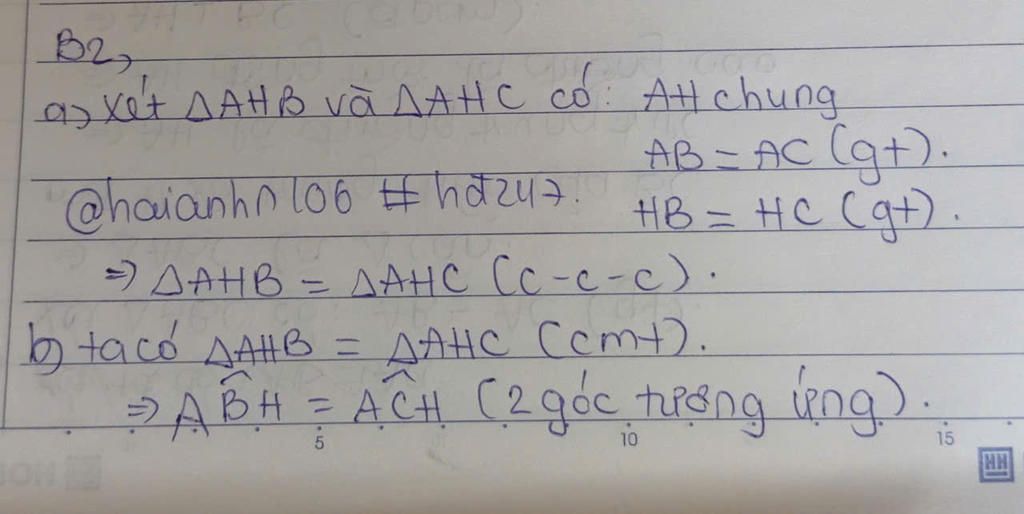 B2,
a, xét ΔAHB và ΔAHC có: AH chung
AB = AC (gt).
@haianhn106 # hđ247.
HB = HC (gt).
=> ΔAHB = ΔAHC (c-c-c).
b) ta có ΔAHB = ΔAHC (cmt).
=> AB̂H = AĈH (2 góc tương ứng).
5 10 15
HH